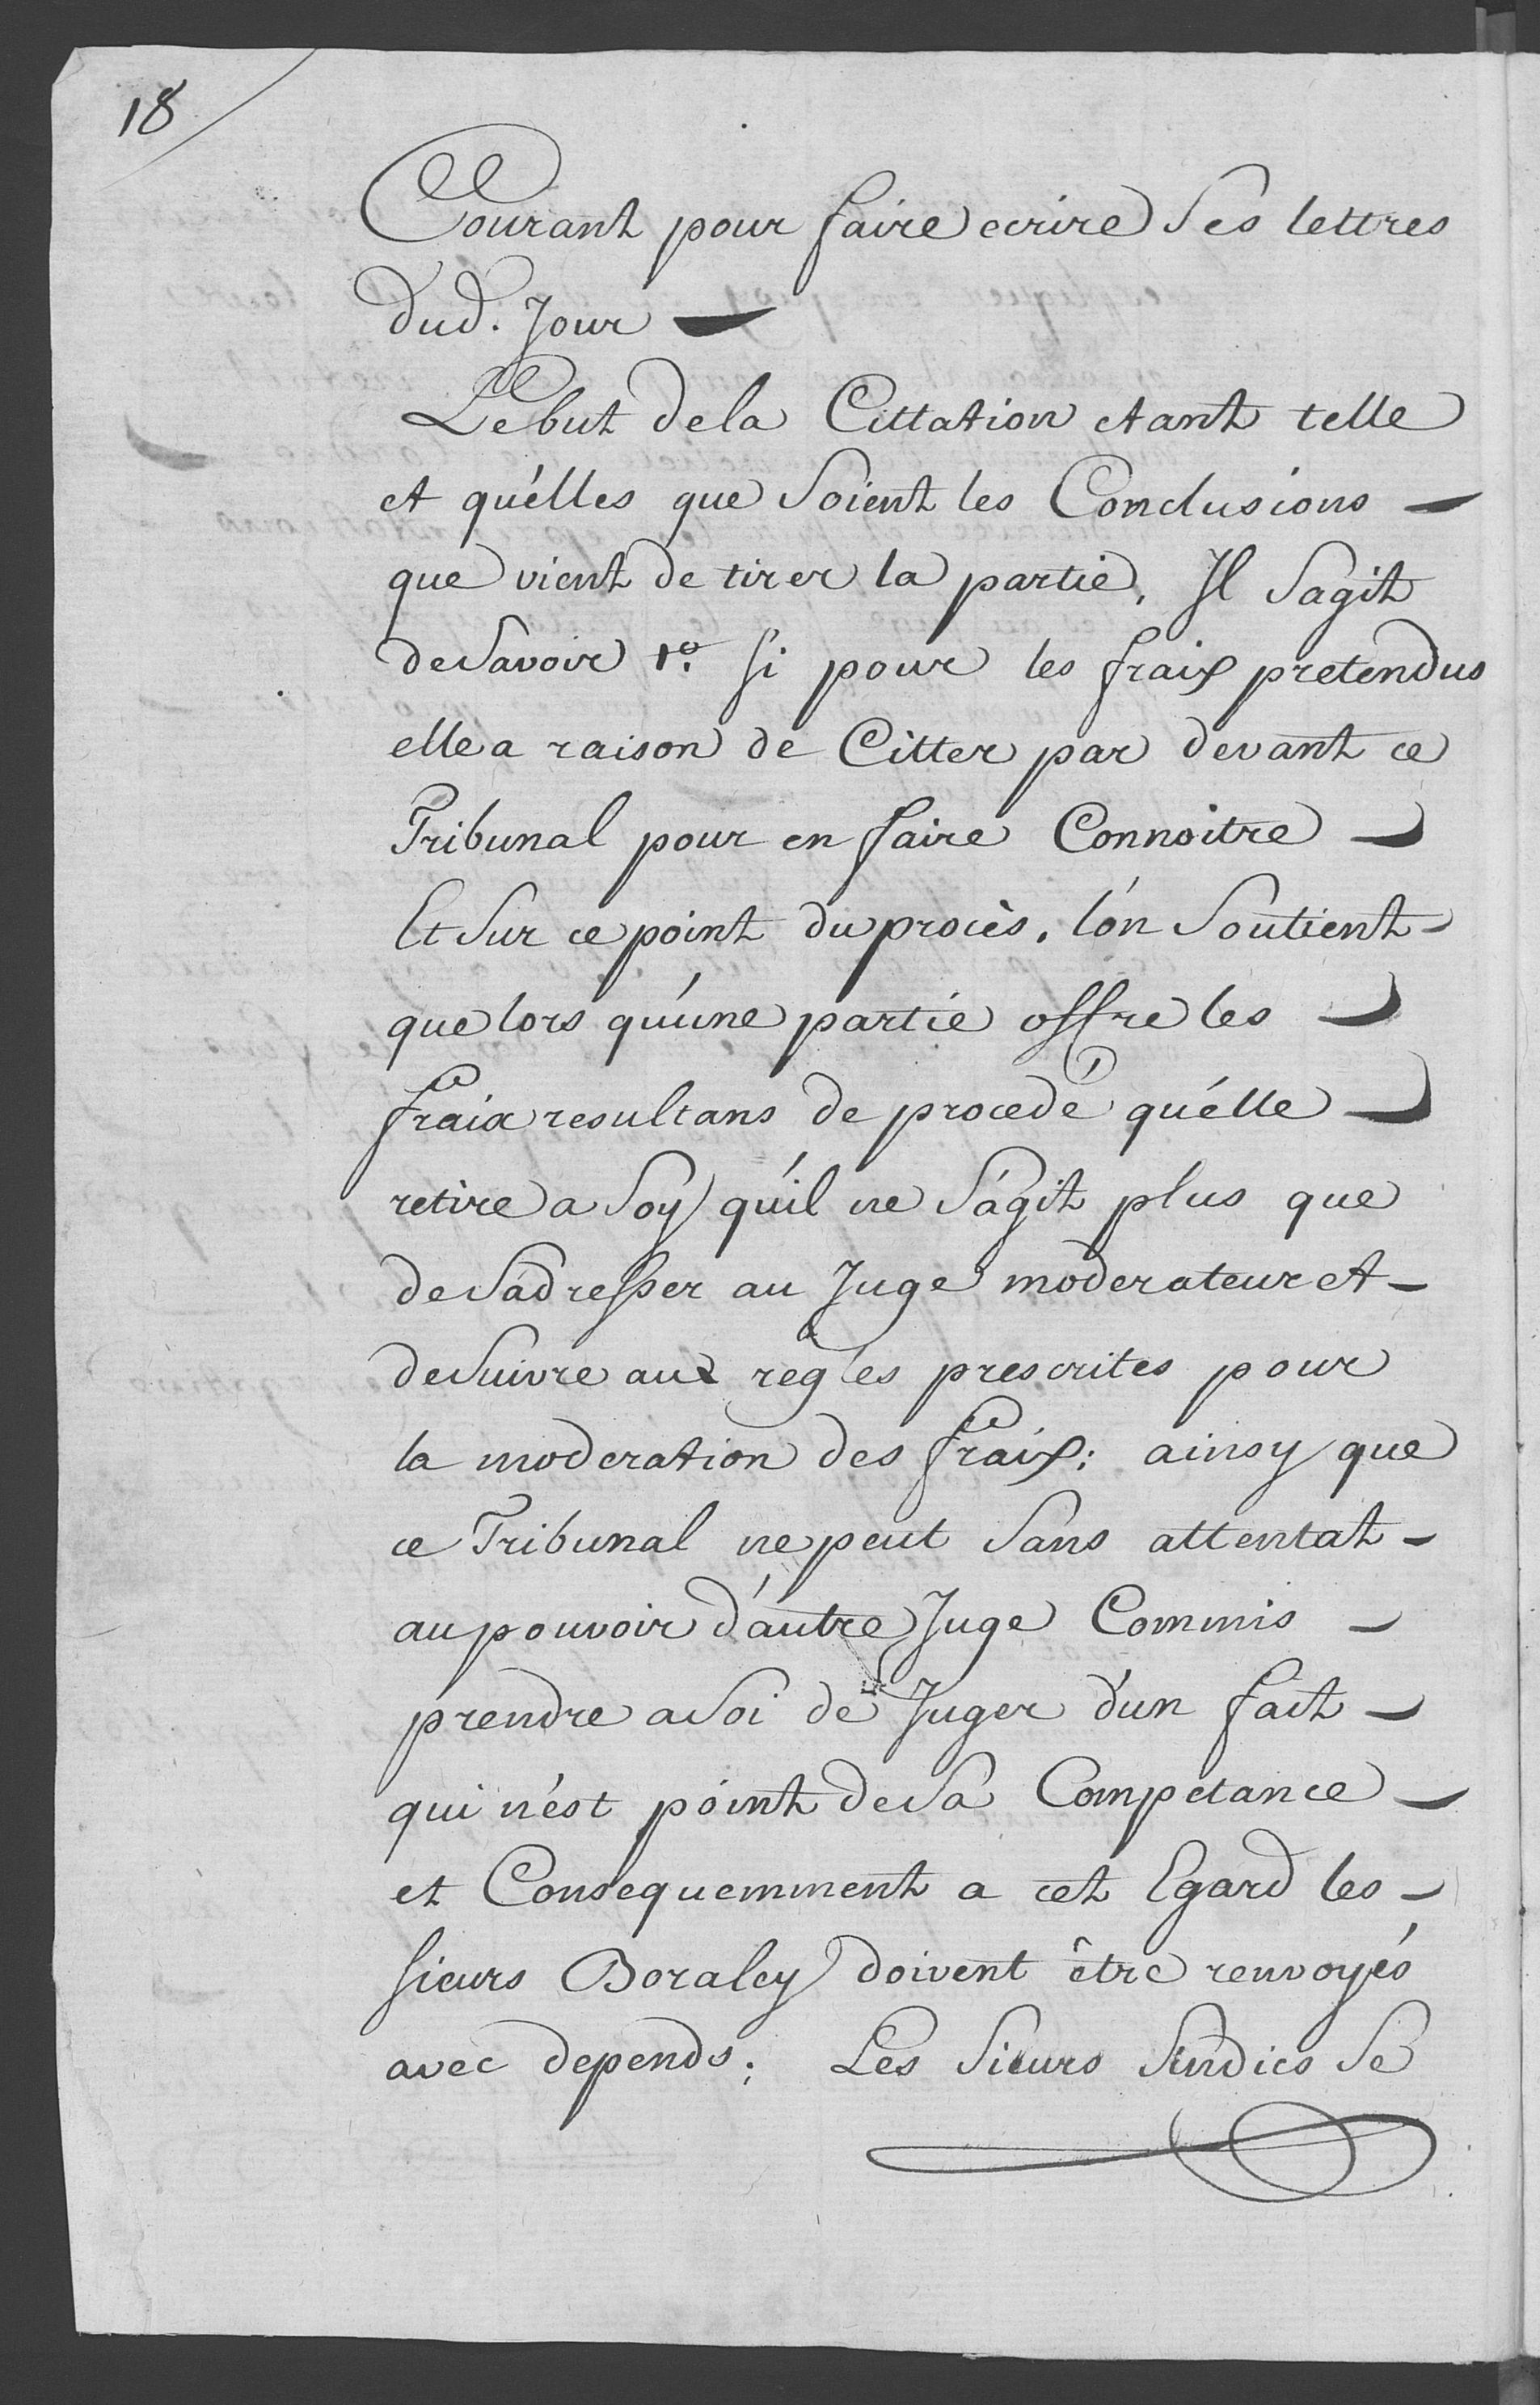 18
Courant pour faire ecrire Ses lettres
dud. Jour
Le but de la Cittation etant telle
et qu'elles que Soient les Conclusions
que vient de tirer la partie, Il Sagit
de Savoir 1.º si pour les fraix pretendus
elle a raison de Citter par devant ce
Tribunal pour en faire Connoitre
Et Sur ce point du procès, l'on Soutient
que lors qu'une partie offre les
fraix resultans de procedé qu'elle
retire a Soy qu'il ne S'agit plus que
de S'adresser au Juge moderateur et
de Suivre aux regles prescrites pour
la moderation des fraix; ainsy que
ce Tribunal ne peut Sans attentat
au pouvoir d'autre Juge Commis
prendre a Soi de Juger d'un fait
qui n'est point de Sa Competance
et Consequemment a cet Egard les
sieurs Boraley doivent être renvoyés
avec depends; Les Sieurs Sindics Se